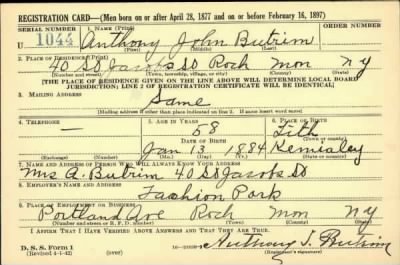 REGISTRATION CARD—(Men born on or after April 28, 1877 and on or before February 16, 1897)
SERIAL NUMBER 1. NAME (Print) ORDER NUMBER
U 1044 Anthony John Butrim
(First) (Middle) (Last)
2. PLACE OF RESIDENCE (Print)
40 St Jacobs St Roch Mon NY
(Number and street) (Town, township, village, or city) (County) (State)
[THE PLACE OF RESIDENCE GIVEN ON THE LINE ABOVE WILL DETERMINE LOCAL BOARD
JURISDICTION; LINE 2 OF REGISTRATION CERTIFICATE WILL BE IDENTICAL]
3. MAILING ADDRESS
Same
[Mailing address if other than place indicated on line 2. If same insert word same]
4. TELEPHONE 5. AGE IN YEARS 6. PLACE OF BIRTH
— 58 Lith
DATE OF BIRTH (Town or county)
Jan 13 1884
(Exchange) (Number) (Mo.) (Day) (Yr.) (State or country)
7. NAME AND ADDRESS OF PERSON WHO WILL ALWAYS KNOW YOUR ADDRESS
Mrs A. Butrim 40 St Jacobs St
8. EMPLOYER'S NAME AND ADDRESS
Fashion Park
9. PLACE OF EMPLOYMENT OR BUSINESS
Portland Ave Roch Mon NY
(Number and street or R. F. D. number) (Town) (County) (State)
I AFFIRM THAT I HAVE VERIFIED ABOVE ANSWERS AND THAT THEY ARE TRUE.
D. S. S. Form 1
(Revised 4-1-42) (over) Anthony J. Butrim
(Registrant's signature)